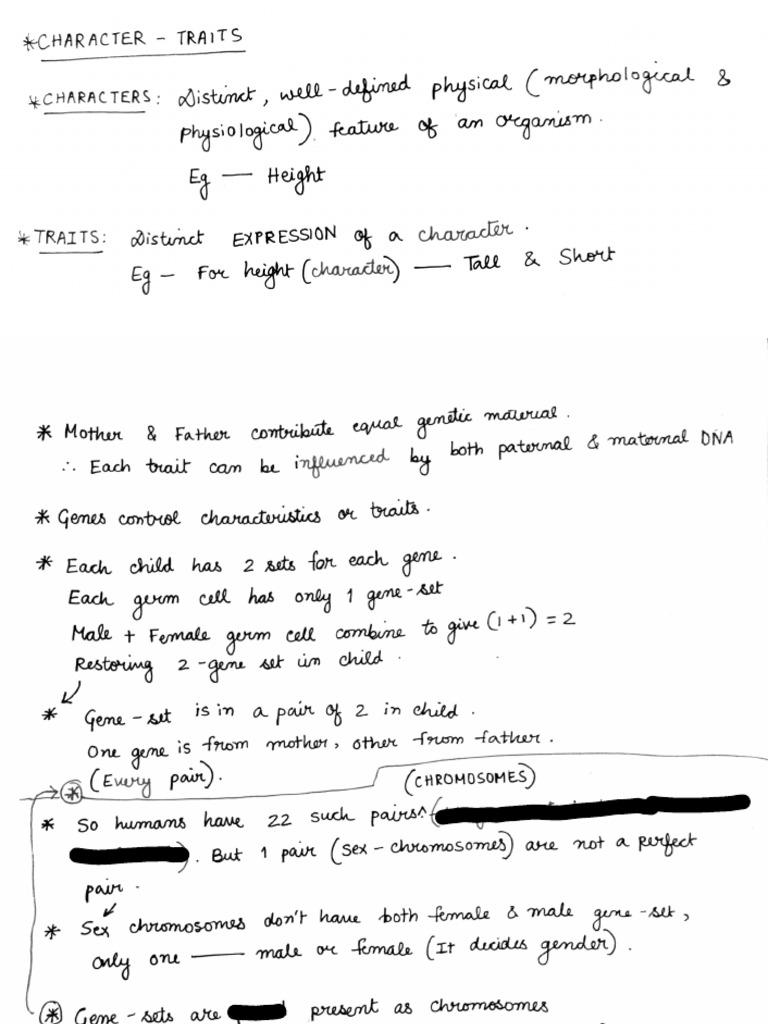 *CHARACTER - TRAITS
*CHARACTERS: Distinct, well-defined physical (morphological &
physiological) feature of an organism.
Eg — Height
*TRAITS: Distinct EXPRESSION of a character.
Eg — For height (character) — Tall & Short
* Mother & Father contribute equal genetic material.
∴ Each trait can be influenced by both paternal & maternal DNA
* Genes control characteristics or traits.
* Each child has 2 sets for each gene.
Each germ cell has only 1 gene-set
Male + Female germ cell combine to give (1+1) = 2
Restoring 2-gene set in child.
* Gene-set is in a pair of 2 in child.
One gene is from mother, other from father.
* (Every pair). (CHROMOSOMES)
* So humans have 22 such pairs^ (
). But 1 pair (sex-chromosomes) are not a perfect
pair.
* Sex chromosomes don't have both female & male gene-set,
only one — male or female (It decides gender).
* Gene-sets are present as chromosomes